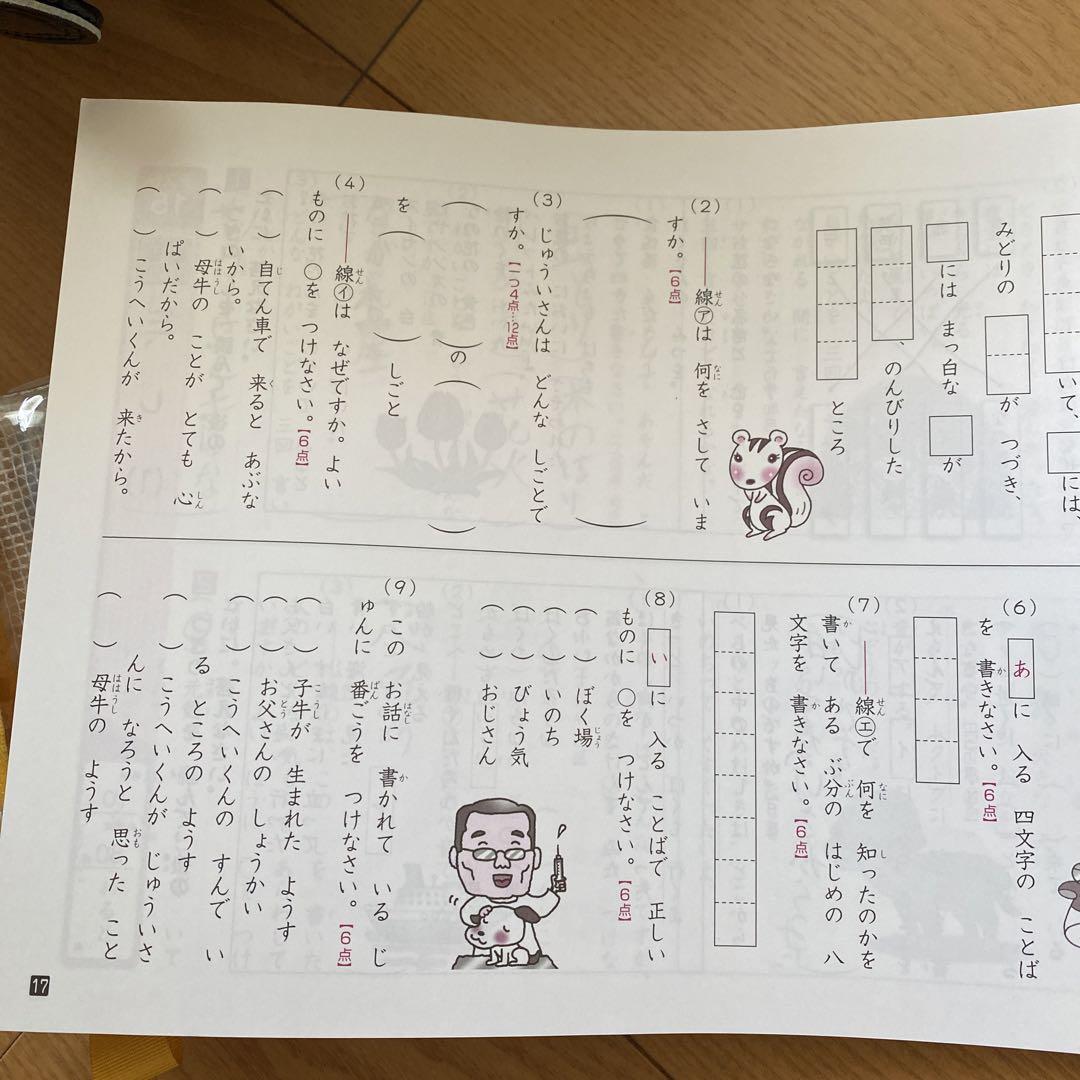 いて、　には、
みどりの　が　つづき、
には　まっ白な　が
、のんびりした
ところ
(2) 線㋐は　何を　さして　いま
すか。【6点】
(3) じゅういさんは　どんな　しごとで
すか。【一つ4点…12点】
(　)の(　)
を(　)しごと
(4) 線㋑は　なぜですか。よい
ものに　○を　つけなさい。【6点】
(　)自てん車で　来ると　あぶな
いから。
(　)母牛の　ことが　とても　心
ぱいだから。
(　)こうへいくんが　来たから。
(6) あに　入る　四文字の　ことば
を　書きなさい。【6点】
(7) 線㋓で　何を　知ったのかを
書いて　ある　ぶ分の　はじめの　八
文字を　書きなさい。【6点】
(8) いに　入る　ことばで　正しい
ものに　○を　つけなさい。【6点】
(　)ぼく場
(　)いのち
(　)びょう気
(　)おじさん
(9) この　お話に　書かれて　いる　じ
ゅんに　番ごうを　つけなさい。【6点】
(　)子牛が　生まれた　ようす
(　)お父さんの　しょうかい
(　)こうへいくんの　すんで　い
る　ところの　ようす
(　)こうへいくんが　じゅういさ
んに　なろうと　思った　こと
(　)母牛の　ようす
17